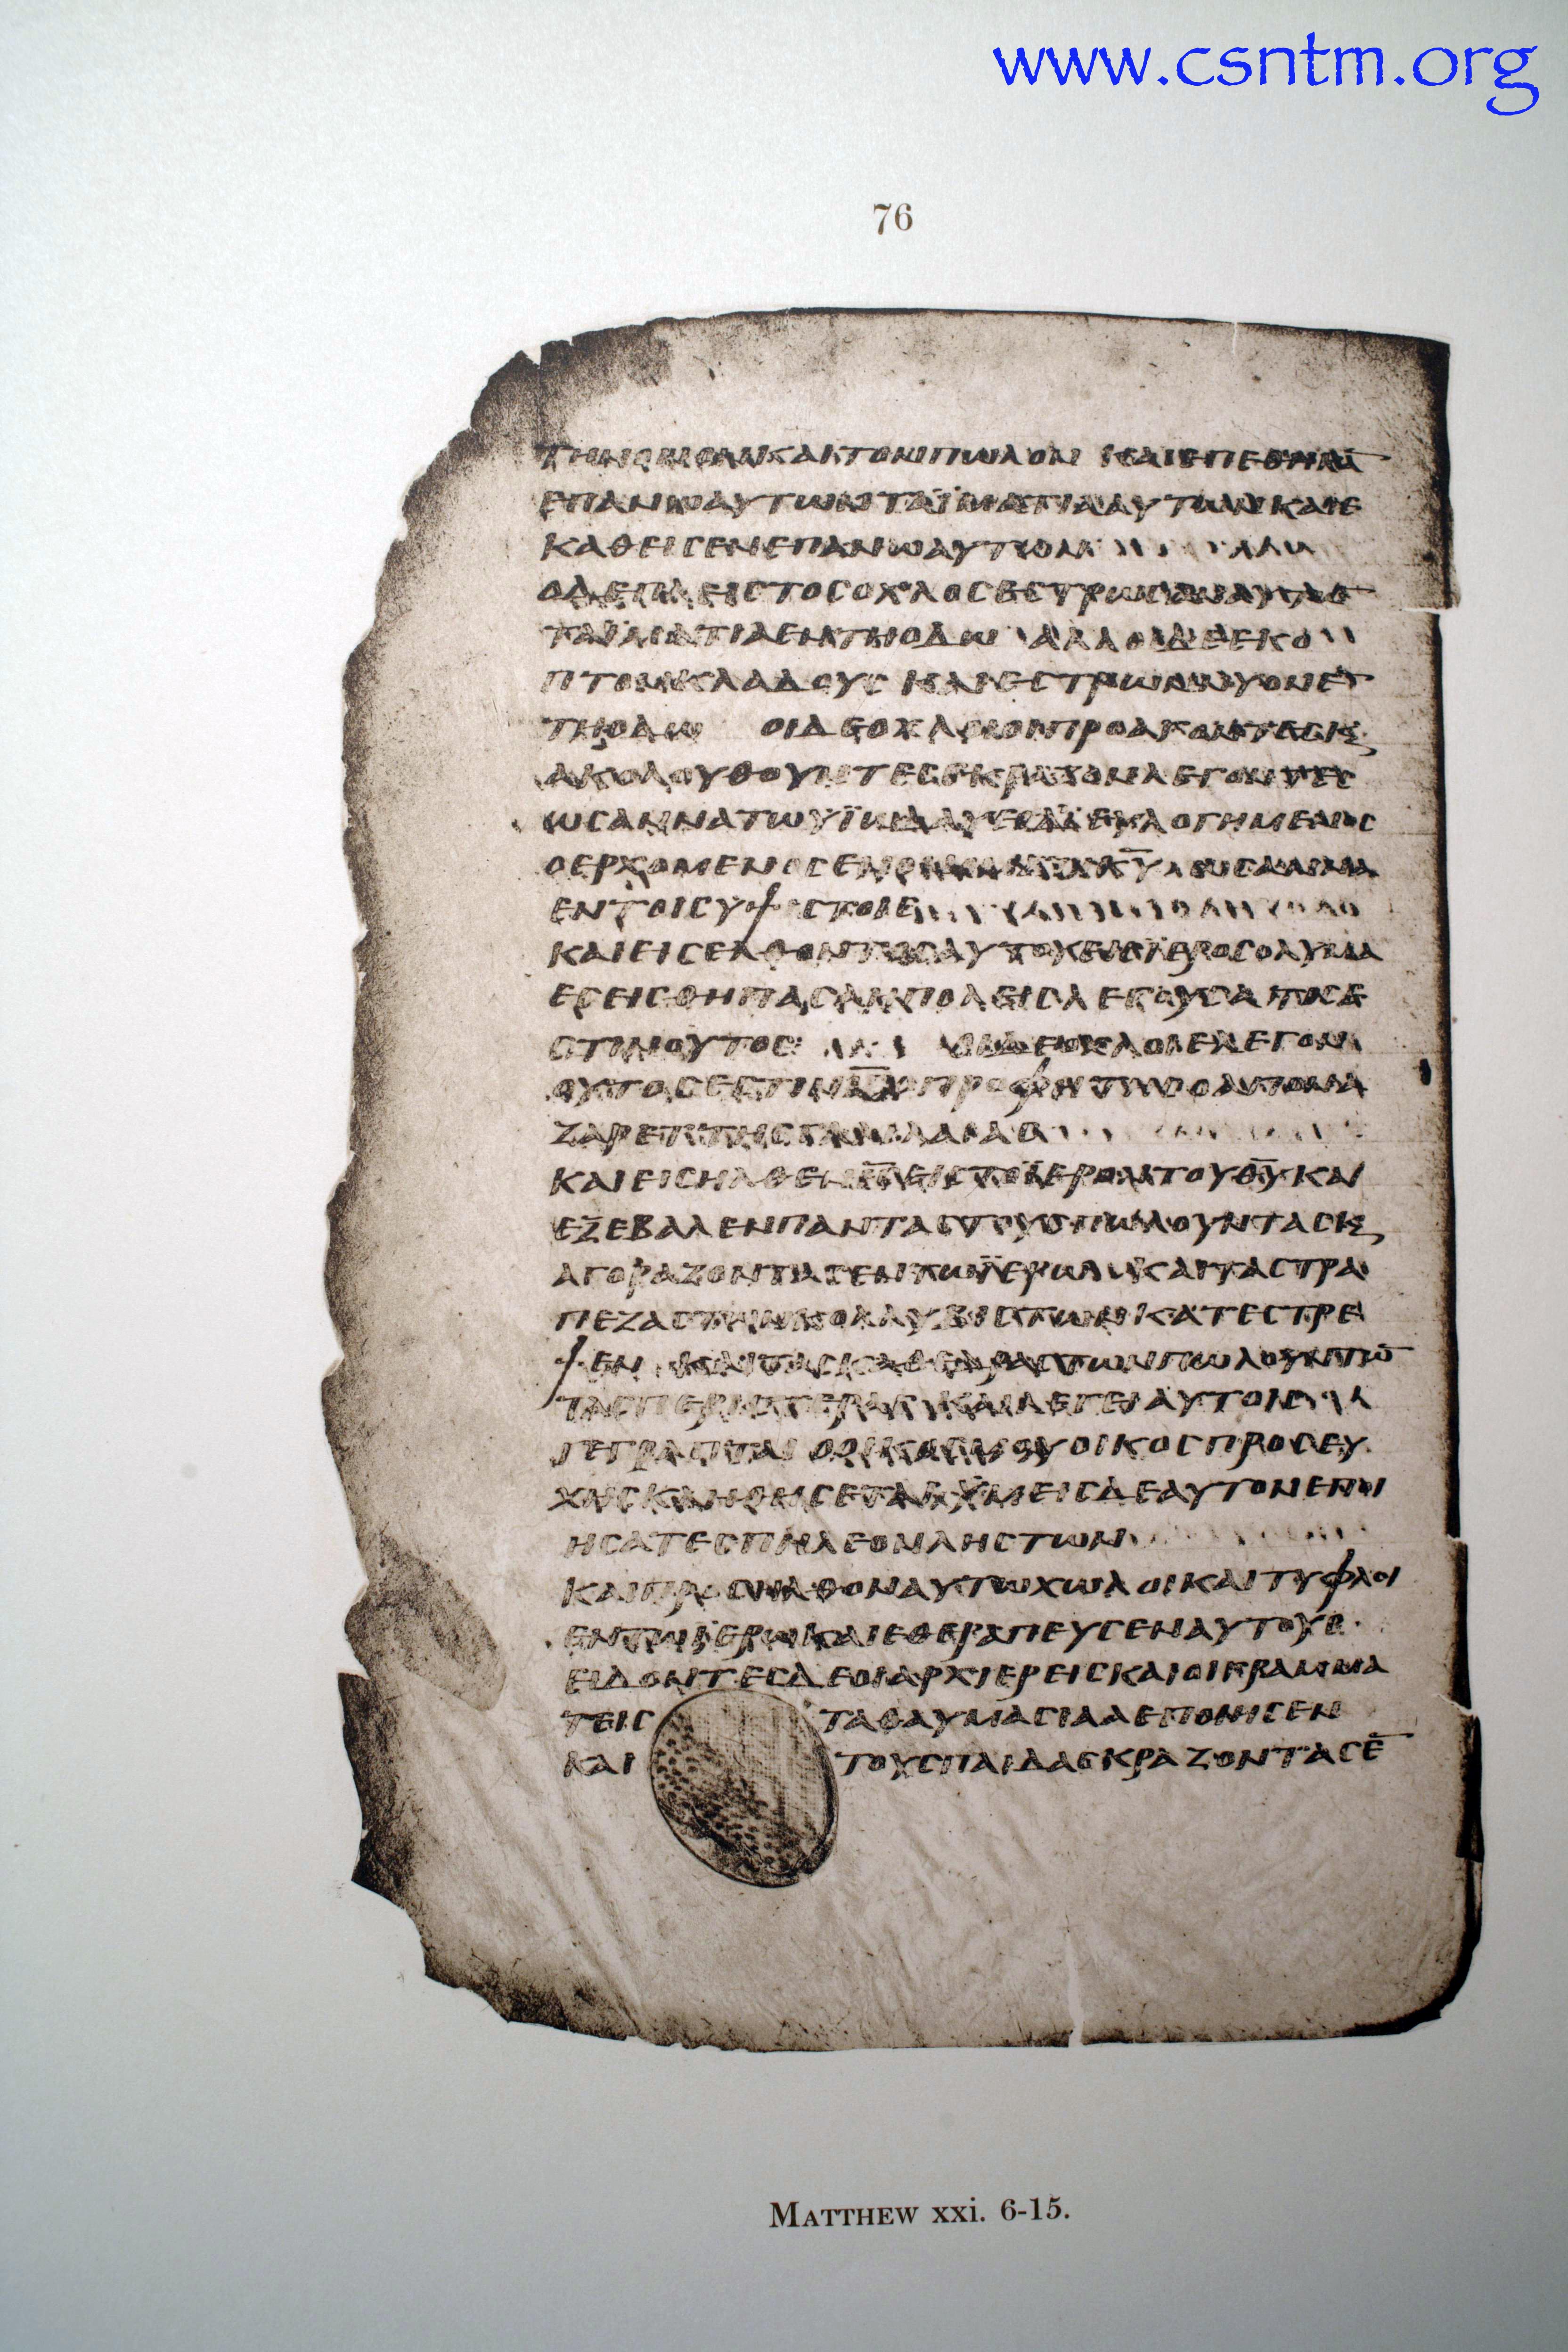 www.csntm.org
76
ΤΗΝΟΝΟΝΚΑΙΤΟΝΠΩΛΟΝ ΚΑΙΕΠΕΘΗΚΑ̅
ΕΠΑΝΩΑΥΤΩΝΤΑΪΜΑΤΙΑΑΥΤΩΝΚΑΙΕ
ΚΑΘΕΙСΕΝΕΠΑΝΩΑΥΤΩΝ
ΟΔΕΠΛΕΙСΤΟСΟΧΛΟС
ΤΑΪΜΑΤΙΑΕΝΤΗΟΔΩ ΑΛΛΟΙΔΕΕΚΟ
ΠΤΟΝΚΛΑΔΟΥС
ΤΗΟΔΩ ΟΙΔΕΟΧΛΟΙΟΙΠΡΟΑΓΟΝΤΕС
ΑΚΟΛΟΥΘΟΥΝΤΕСΕΚΡΑΖΟΝΛΕΓΟΝΤΕС
ΩСΑΝΝΑΤΩΥΪΩ ΕΥΛΟΓΗΜΕΝΟС
ΟΕΡΧΟΜΕΝΟСΕΝΟΝΟΜΑΤΙΚ̅Υ̅ ΩСΑΝΝΑ
ΕΝΤΟΙСΥΨΙСΤΟΙС
ΚΑΙΕΙСΕΛΘΟΝΤΟСΑΥΤΟΥΕΙСΪΕΡΟСΟΛΥΜΑ
ΕСΕΙСΘΗΠΑСΑΗΠΟΛΕΙСΛΕΓΟΥСΑΤΙСΕ
СΤΙΝΟΥΤΟС ΟΙΔΕΟΧΛΟΙΕΛΕΓΟΝ
ΟΥΤΟСΕСΤΙΝ ΟΠΡΟΦΗΤΗС ΟΑΠΟΝΑ
ΖΑΡΕΤΗСΓΑΛΙΛΑΙΑС
ΚΑΙΕΙСΗΛΘΕΝ ΕΙСΤΟΪΕΡΟΝΤΟΥΘ̅Υ̅ΚΑΙ
ΕΞΕΒΑΛΕΝΠΑΝΤΑСΤΟΥСΠΩΛΟΥΝΤΑСΚ,
ΑΓΟΡΑΖΟΝΤΑСΕΝΤΩΪΕΡΩ ΚΑΙΤΑСΤΡΑ
ΠΕΖΑСΤΩΝΚΟΛΛΥΒΙСΤΩΝΚΑΤΕСΤΡΕ
ΨΕΝ ΚΑΙΤΑСΚΑΘΕΔΡΑСΤΩΝΠΩΛΟΥΝΤΩ̅
ΤΑСΠΕΡΙСΤΕΡΑС
ΓΕΓΡΑΠΤΑΙ ΟΟΙΚΟСΜΟΥΟΙΚΟСΠΡΟСΕΥ
ΧΗСΚΛΗΘΗСΕΤΑΙΫΜΕΙСΔΕΑΥΤΟΝΕΠΟΙ
ΗСΑΤΕСΠΗΛΕΟΝΛΗСΤΩΝ
ΚΑΙΠΡΟСΗΛΘΟΝΑΥΤΩΧΩΛΟΙΚΑΙΤΥΦΛΟΙ
ΕΝΤΩΪΕΡΩΚΑΙΕΘΕΡΑΠΕΥСΕΝΑΥΤΟΥС
ΕΙΔΟΝΤΕСΔΕΟΙΑΡΧΙΕΡΕΙСΚΑΙΟΙΓΡΑΜΜΑ
ΤΕΙС ΤΑΘΑΥΜΑСΙΑΑΕΠΟΙΗСΕΝ
ΚΑΙ ΤΟΥСΠΑΙΔΑСΚΡΑΖΟΝΤΑСΕ̅
Matthew xxi. 6-15.